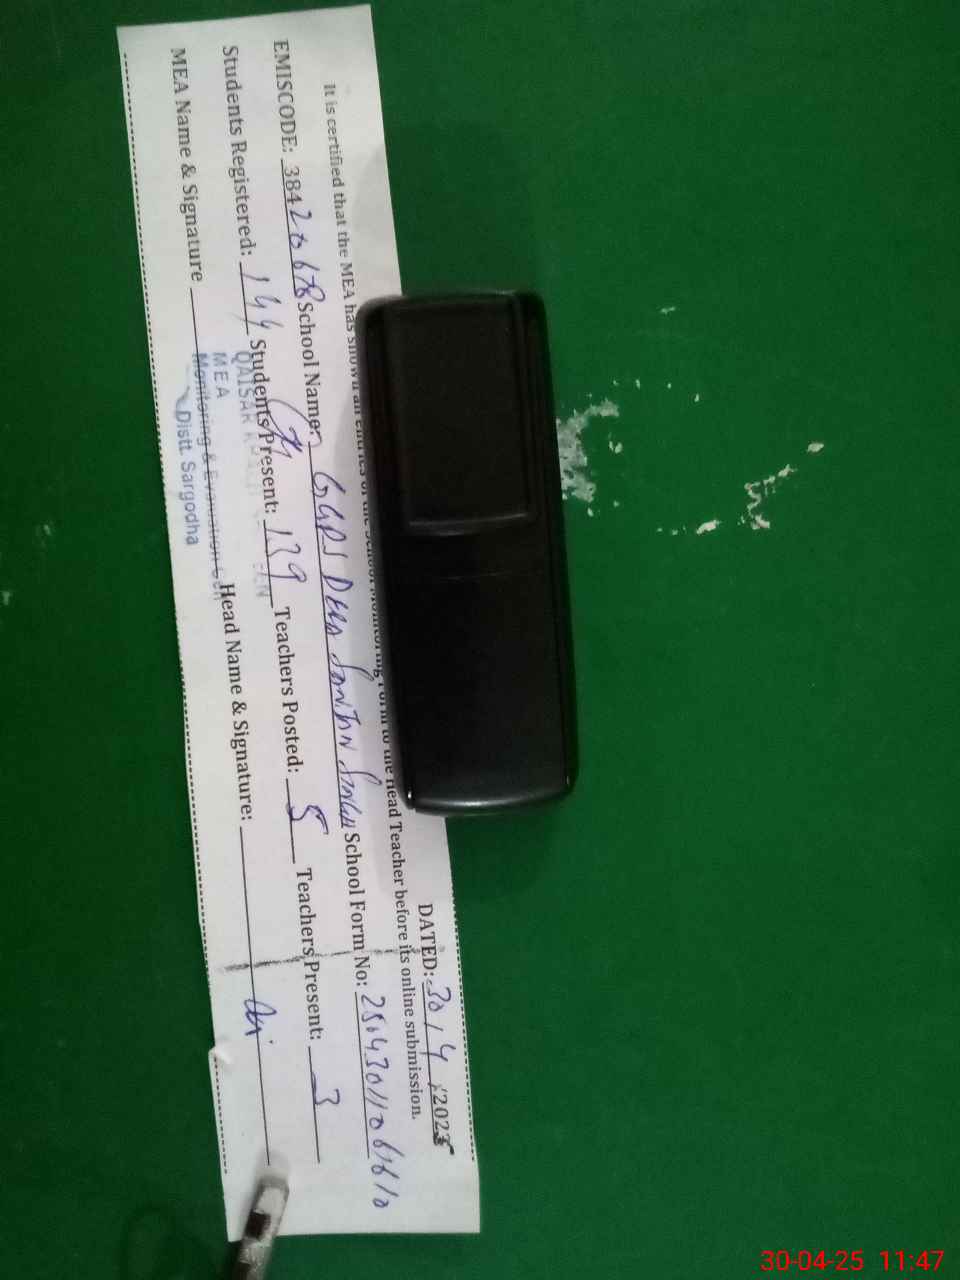 DATED: 30/4/2025
It is certified that the MEA has shown all entries of the School Monitoring Form to the Head Teacher before its online submission.
EMISCODE: 38420678 School Name: GGPS School Form No:
Students Registered: 144 Students Present: 139 Teachers Posted: 5 Teachers Present: 3
MEA Name & Signature Head Name & Signature:
QAISAR
MEA
Monitoring & Evaluation Cell
Distt. Sargodha
30-04-25 11:47